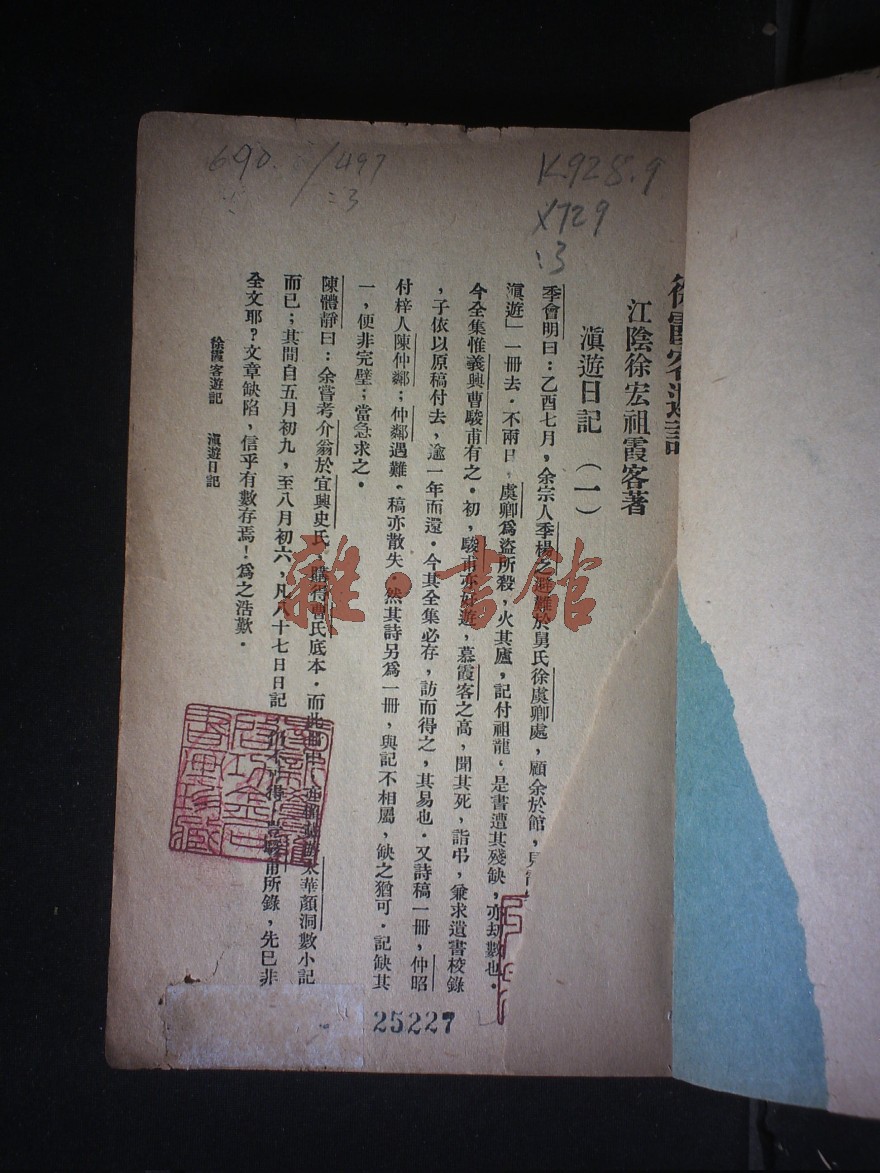 690. /497
:3
K928.9
X729
:3
徐霞客遊記
江陰徐宏祖霞客著
滇遊日記(一)
季會明曰：乙酉七月，余宗人季楊之避難於舅氏徐虞卿處，顧余於館，見
滇遊」一冊去．不兩日，虞卿爲盜所殺，火其廬，記付祖龍，是書遭其殘缺，亦劫數也．
今全集惟義興曹駿甫有之．初，駿甫亦好遊，慕霞客之高，聞其死，詣弔，兼求遺書校錄
，子依以原稿付去，逾一年而還．今其全集必存，訪而得之，其易也．又詩稿一冊，仲昭
付梓人陳仲鄰；仲鄰遇難，稿亦散失．然其詩另爲一冊，與記不相屬，缺之猶可．記缺其
一，便非完璧；當急求之．
陳體靜曰：余嘗考介翁於宜興史氏，購得曹氏底本．而此冊中，太華顏洞數小記
而已；其間自五月初九，至八月初六，凡八十七日日記，所錄，先已非
全文耶？文章缺陷，信乎有數存焉！爲之浩歎．
徐霞客遊記 滇遊日記
雜·書館
25227